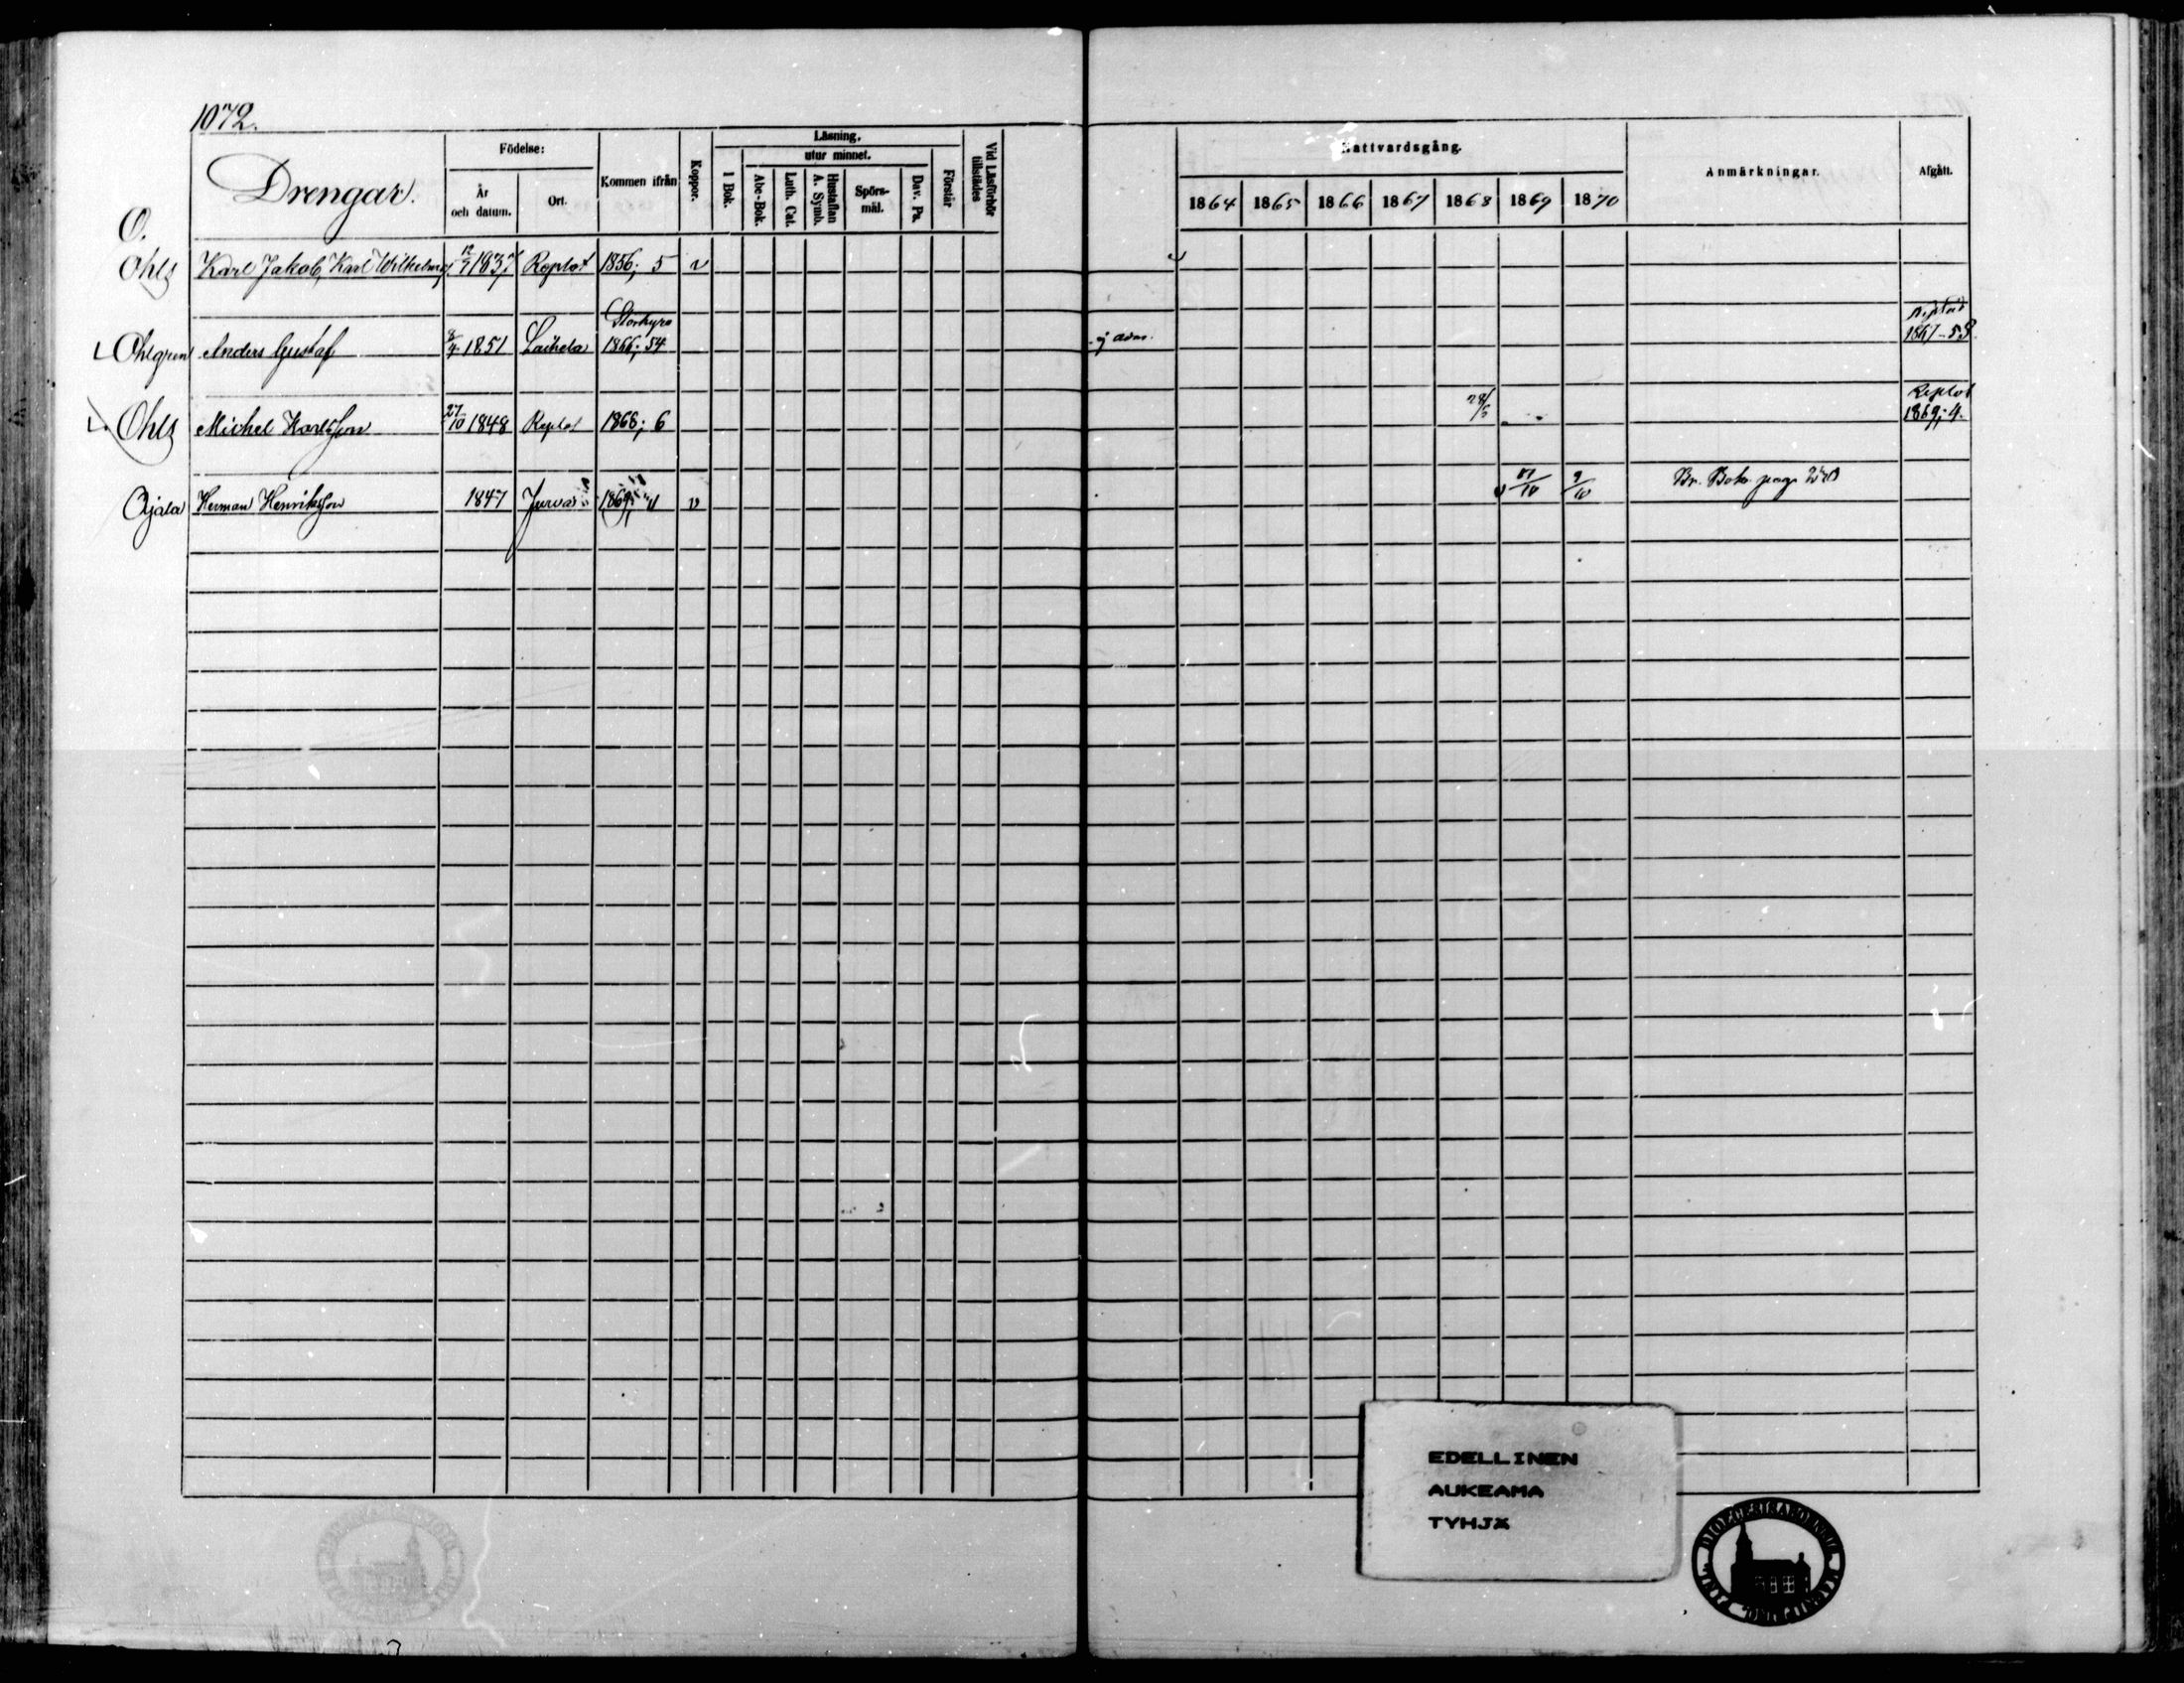 1072.
Drengar.
Födelse:
År och datum.
Ort.
Kommen ifrån
Koppor.
Läsning.
utur minnet.
I Bok.
Abc-Bok.
Luth. Cat.
Hustaflan A. Symb.
Spörs-mål.
Dav. Ps.
Förstår
Vid Läsförhör tillstädes
Nattvardsgång.
1864 1865 1866 1867 1868 1869 1870
Anmärkningar.
Afgått.
O.
Ohls Karl Jakob, Karl Wilhelms 12/7 1837 Replot 1856; 5 v
Storkyro
Replot
Ohlgren Anders Gustaf 8/4 1851 Laihela 1866; 54 ej adm. 1867-58.
Replot
Ohls Michel Karlsson 27/10 1848 Replot 1868; 6 28/5 1869; 4.
Ojala Herman Henriksson 1847 Jurva 1869; v 17/10 9/10 Br. Bok. pag.
EDELLINEN
AUKEAMA
TYHJÄ